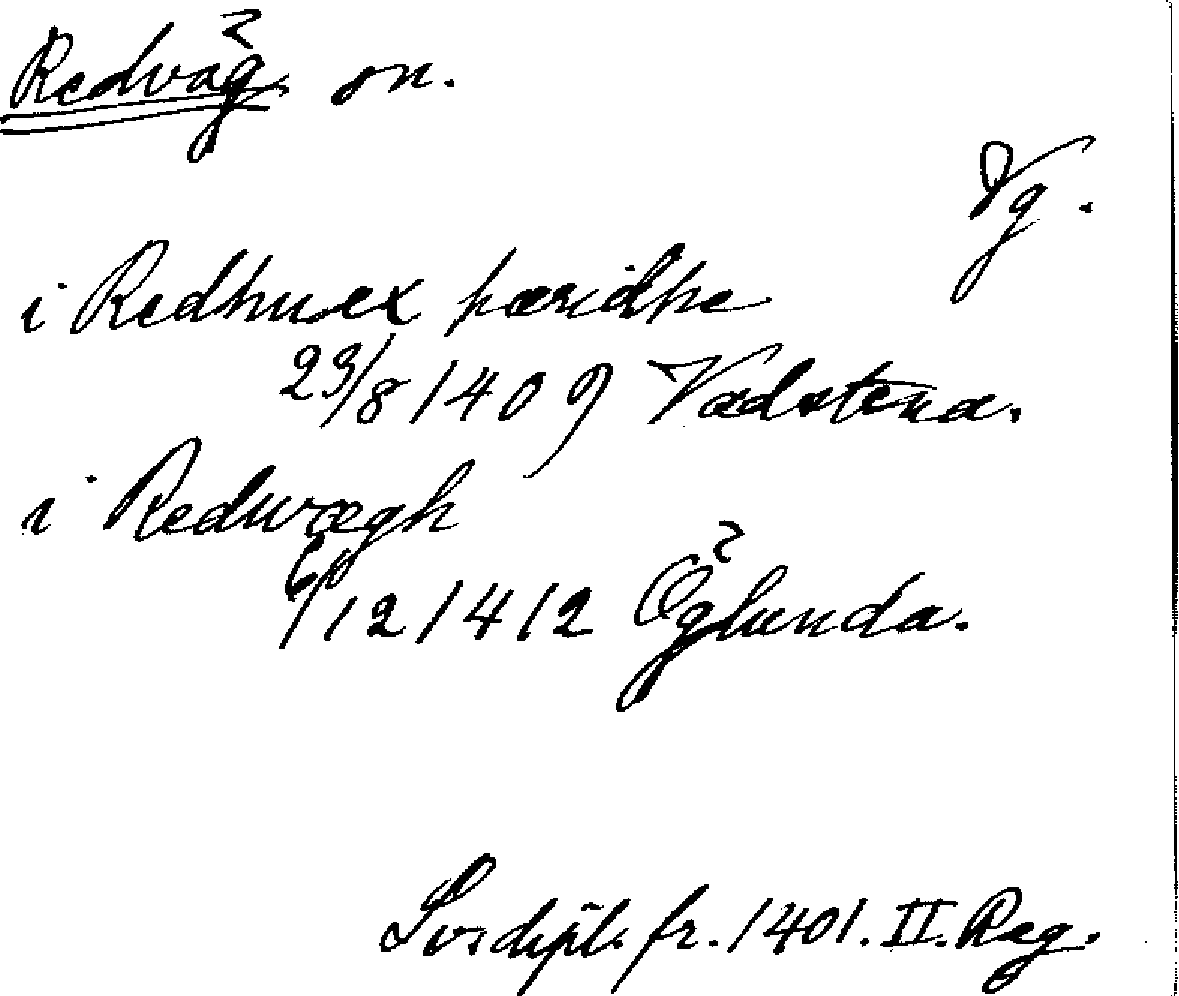 Redväg on.
Vg.
i Redhuæx hæridhe
23/8 1409 Vadstena.
i Redwægh
6/12 1412 Öglunda.
Sv. dipl. fr. 1401. II. Reg.